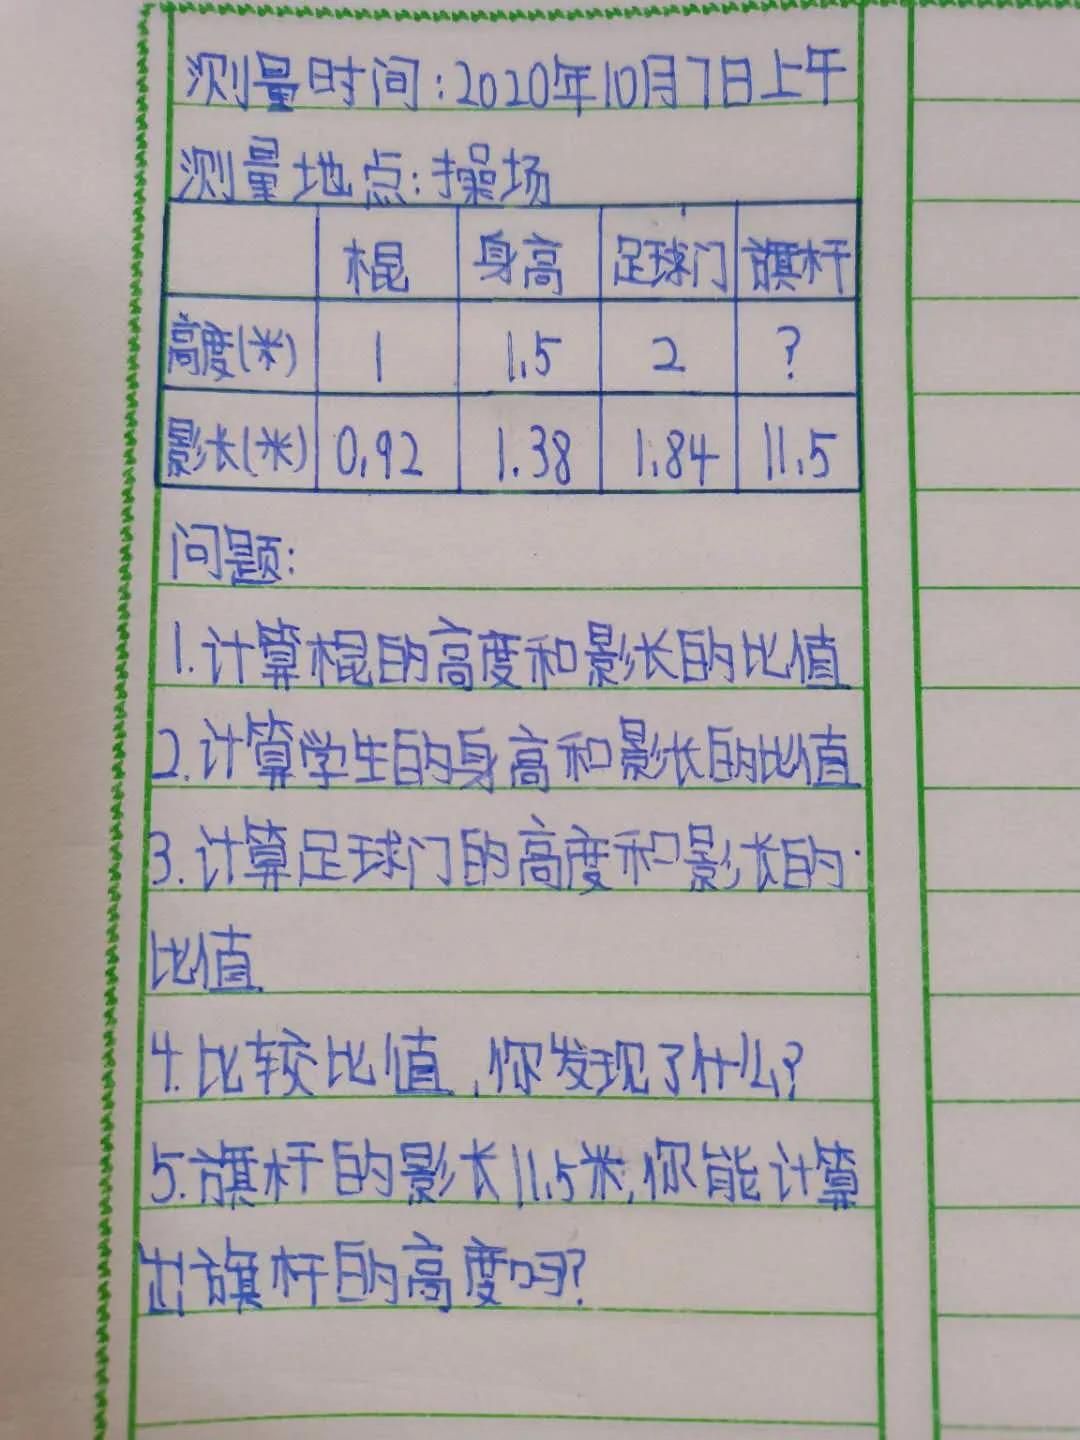 测量时间:2020年10月7日上午
测量地点:操场
棍 身高 足球门 旗杆
高度(米) 1 1.5 2 ?
影长(米) 0.92 1.38 1.84 11.5
问题:
1.计算棍的高度和影长的比值
2.计算学生的身高和影长的比值
3.计算足球门的高度和影长的
比值
4.比较比值,你发现了什么?
5.旗杆的影长11.5米,你能计算
出旗杆的高度吗?